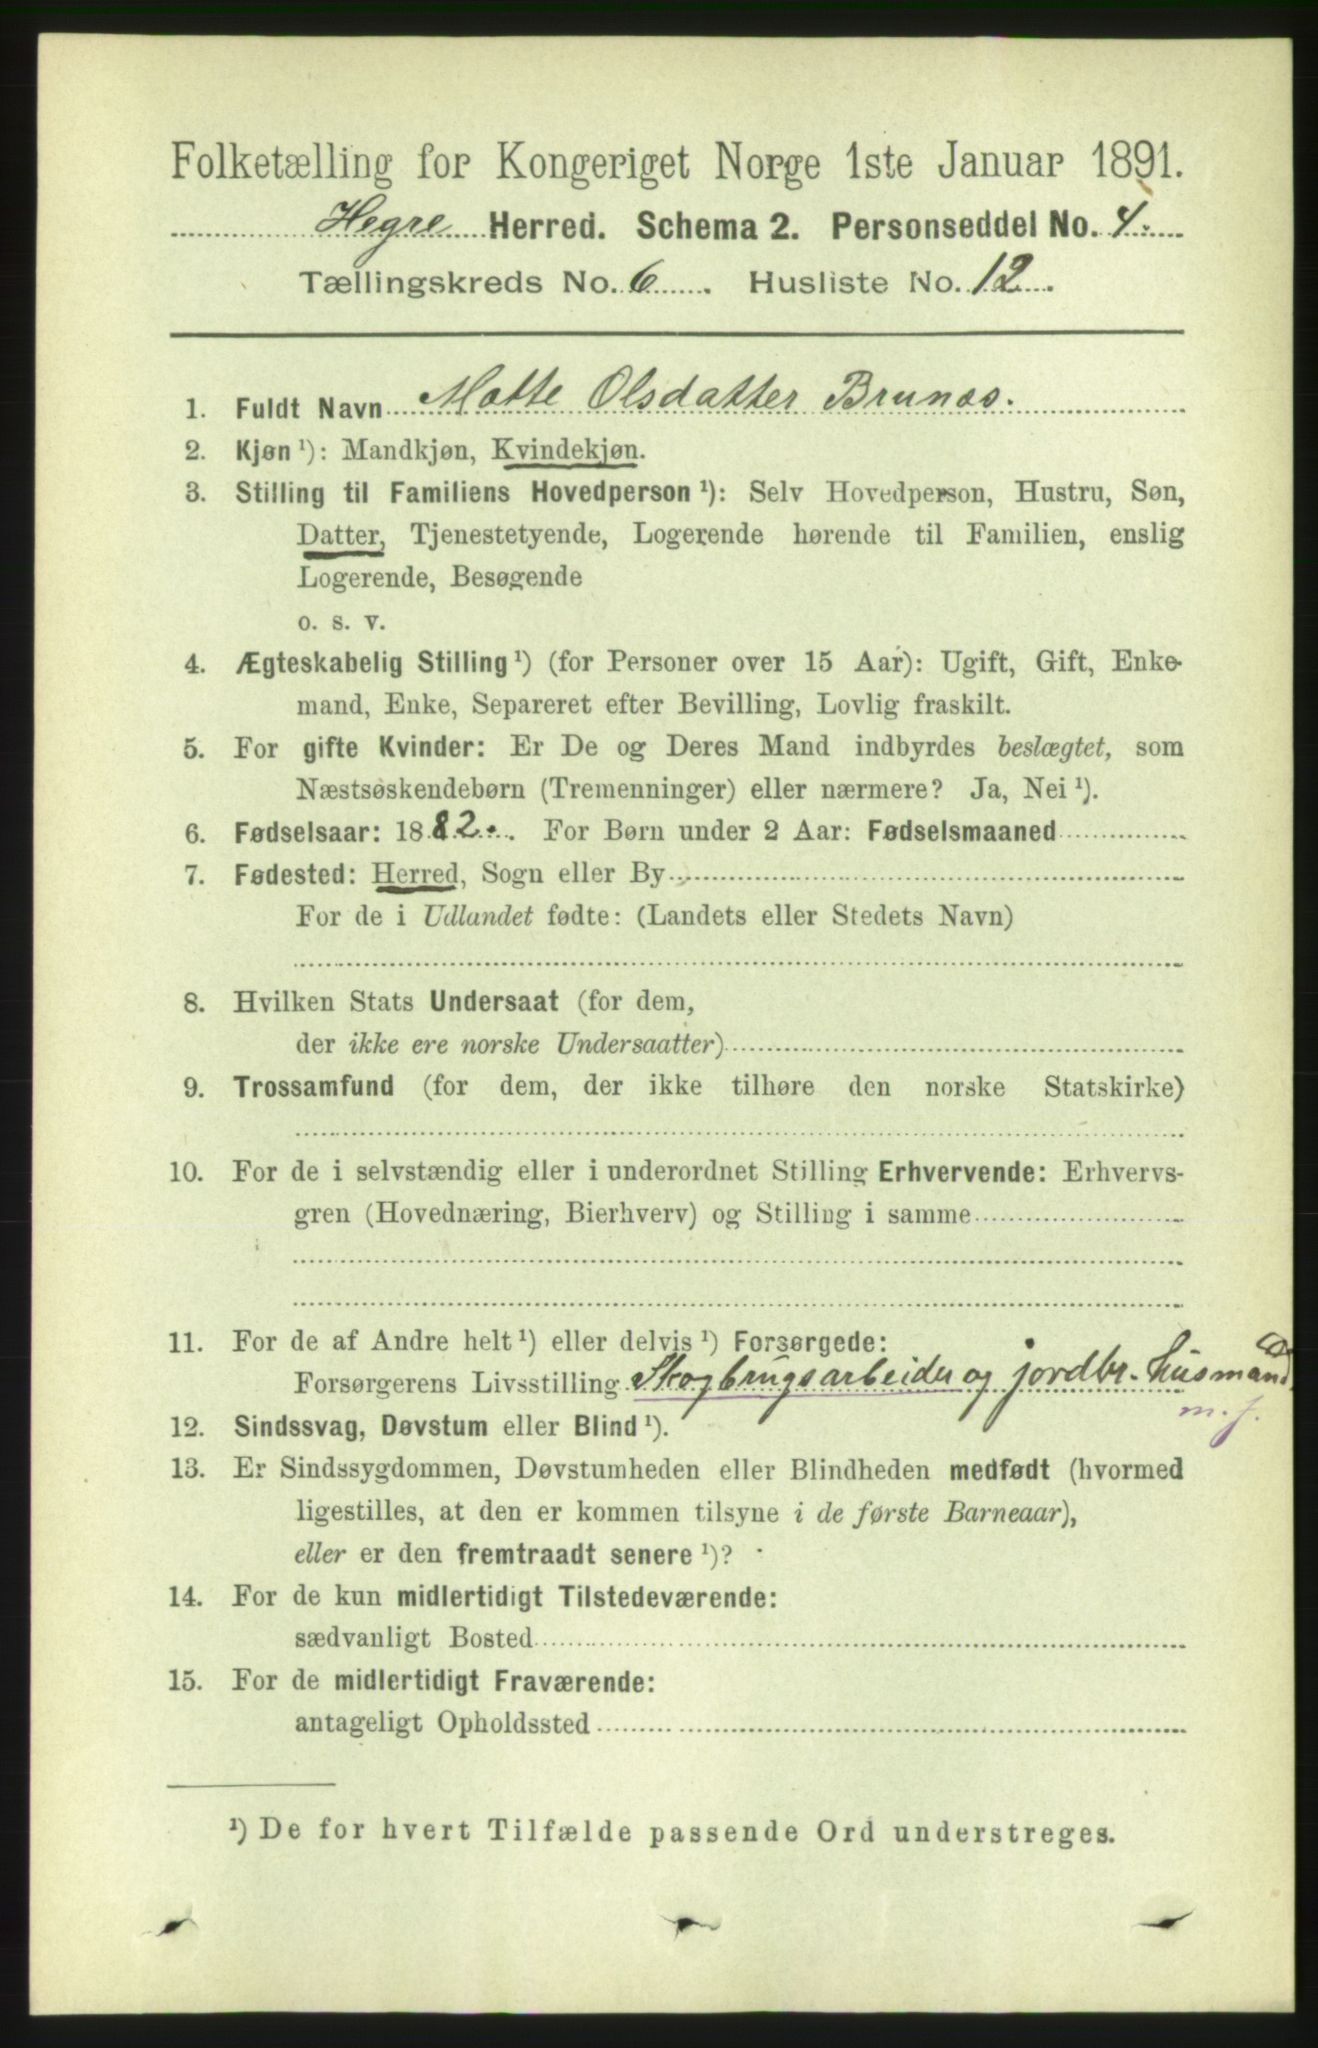 Folketælling for Kongeriget Norge 1ste Januar 1891.
Hegre Herred. Schema 2. Personseddel No. 4.
Tællingskreds No. 6. Husliste No. 12.
1. Fuldt Navn Mette Olsdatter Brunæs.
2. Kjøn ¹): Mandkjøn, Kvindekjøn.
3. Stilling til Familiens Hovedperson ¹): Selv Hovedperson, Hustru, Søn,
Datter, Tjenestetyende, Logerende hørende til Familien, enslig
Logerende, Besøgende
o. s. v.
4. Ægteskabelig Stilling ¹) (for Personer over 15 Aar): Ugift, Gift, Enke-
mand, Enke, Separeret efter Bevilling, Lovlig fraskilt.
5. For gifte Kvinder: Er De og Deres Mand indbyrdes beslægtet, som
Næstsøskendebørn (Tremenninger) eller nærmere? Ja, Nei ¹).
6. Fødselsaar: 1882. For Børn under 2 Aar: Fødselsmaaned
7. Fødested: Herred, Sogn eller By
For de i Udlandet fødte: (Landets eller Stedets Navn)
8. Hvilken Stats Undersaat (for dem,
der ikke ere norske Undersaatter)
9. Trossamfund (for dem, der ikke tilhøre den norske Statskirke)
10. For de i selvstændig eller i underordnet Stilling Erhvervende: Erhvervs-
gren (Hovednæring, Bierhverv) og Stilling i samme
11. For de af Andre helt ¹) eller delvis ¹) Forsørgede:
Forsørgerens Livsstilling Skogbrugsarbeider og jordbr. husmand
m. j.
12. Sindssvag, Døvstum eller Blind ¹).
13. Er Sindssygdommen, Døvstumheden eller Blindheden medfødt (hvormed
ligestilles, at den er kommen tilsyne i de første Barneaar),
eller er den fremtraadt senere ¹)?
14. For de kun midlertidigt Tilstedeværende:
sædvanligt Bosted
15. For de midlertidigt Fraværende:
antageligt Opholdssted
¹) De for hvert Tilfælde passende Ord understreges.